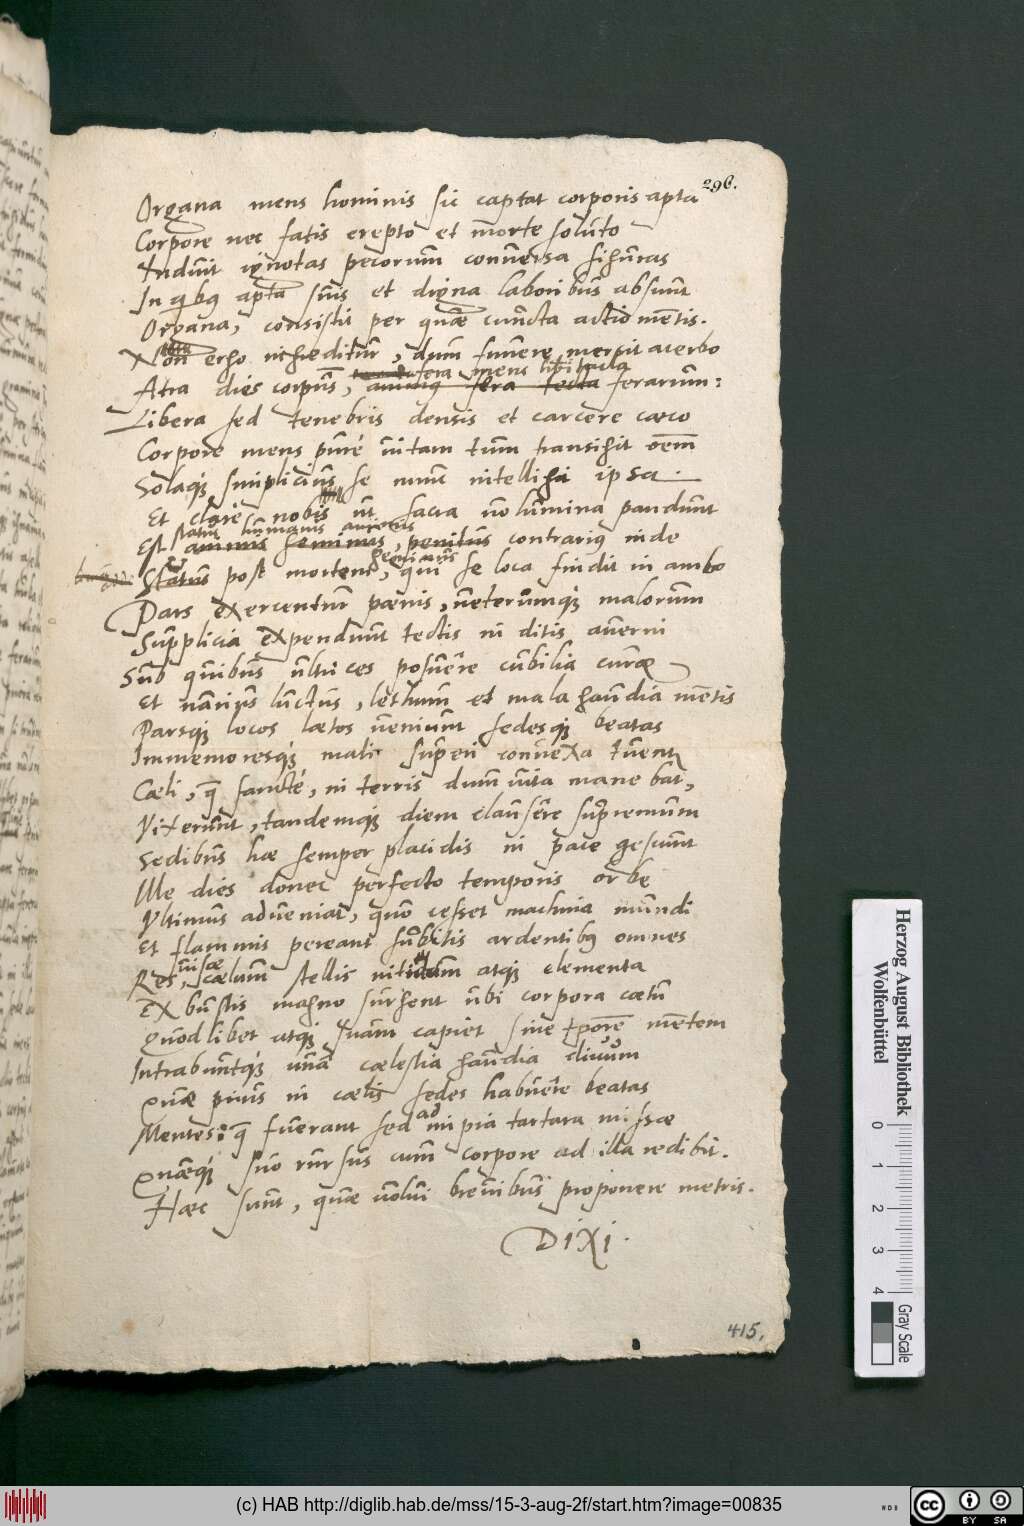 296.
Organa mens hominis sic captat corporis apta
Corpore nec fatis erepto et morte soluto
Induit ignotas pecorum conuersa figuras
In qbꝫ apta suis et digna laboribus absunt
Organa, consistit per quæ cuncta actio mẽtis.
Non ergo ingreditur, dum funere mersit acerbo
fera mens
Atra dies corpus, tecta ferarum:
Libera sed tenebris densis et carcere cæco
Corpore mens purè uitam tum transigit oẽm
Solaqꝫ simplicius se nunc intelligit ipsa.
Et clarè nobis ut sacra uolumina pandunt
status humanis
Est animis, penitus contrariꝰ inde
geminus
Status post mortem, qui se loca findit in ambo
Pars exercentur pænis, ueterumqꝫ malorum
Supplicia expendunt tectis in ditis auerni
Sub quibus ultrices posuere cubilia curæ
Et uarius luctus, lethum et mala gaudia mẽtis
Parsqꝫ locos lætos ueniunt sedesqꝫ beatas
Immemoresqꝫ mali superi conuexa tuentr
Cæli, q̃ sanctè, in terris dum uita manebat,
Vixerunt, tandemqꝫ diem clausere supremum
Sedibus hæ semper placidis in pace quiescunt
Ille dies donec perfecto temporis orbe
Vltimus adueniat, quo cesset machina mundi
Et flammis pereant subitis ardentibꝰ omnes
uisæ
Res, cælum stellis nitidum atqꝫ elementa
Ex bustis magno surgent ubi corpora cætu
Quodlibet atqꝫ suam capiet sine tp̃ore mẽtem
Intrabuntqꝫ unà cælestia gaudia diuum
Quæ prius in cælis sedes habuere beatas
Mentes: q̃ fuerant sed ad impia tartara missæ
Quæqꝫ suo rursus cum corpore ad illa redibit.
Hæc sunt, quæ uolui breuibus proponere metris.
Dixi.
415.
Herzog August Bibliothek
Wolfenbüttel
0 1 2 3 4
Gray Scale
(c) HAB http://diglib.hab.de/mss/15-3-aug-2f/start.htm?image=00835
cc BY SA